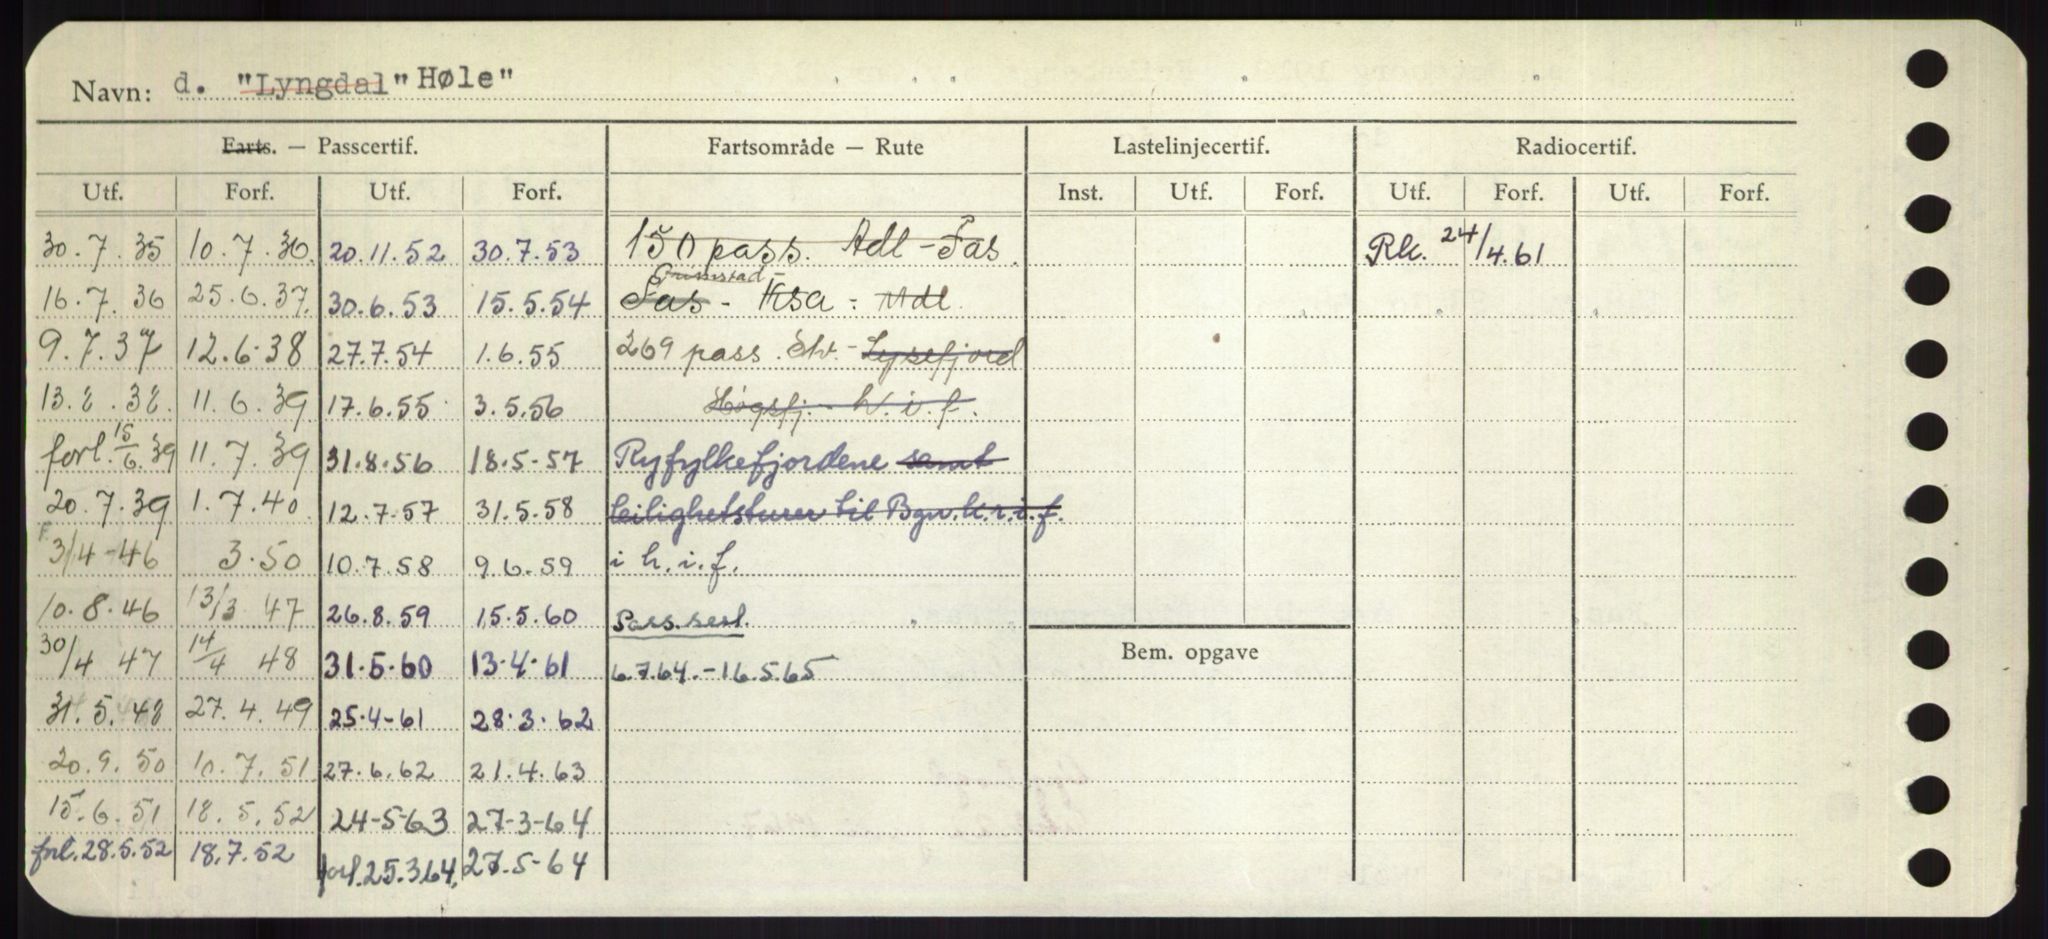 Navn: d. "Lyngdal" Høle"
Farts. — Passcertif. Fartsområde — Rute Lastelinjecertif. Radiocertif.
Utf. Forf. Utf. Forf. Inst. Utf. Forf. Utf. Forf. Utf. Forf.
30.7.35 10.7.36 20.11.52 30.7.53 150 pass. Adl - Fas. Rk. 24/4.61
16.7.36 25.6.37. 30.6.53 15.5.54 Fas - Ksa - Mdl.
9.7.37 12.6.38 27.7.54 1.6.55 269 pass. Shv. - Lysefjord
13.8.38. 11.6.39 17.6.55 3.5.56 Høgsfj. - h.i.f.
forl. 15/6.39 11.7.39 31.8.56 18.5.57 Ryfylkefjordene samt
20.7.39 1.7.40 12.7.57 31.5.58 leilighetsturer til Bgn. h.r.i.f.
3/4-46 3.50 10.7.58 9.6.59 i h.i.f.
10.8.46 13/3 47 26.8.59 15.5.60 Pass.sert.
30/4 47 14/4 48 31.5.60 13.4.61 6.7.64.-16.5.65 Bem. opgave
31.5.48 27.4.49 25.4-61 28.3.62
20.9.50 10.7.51 27.6.62 21.4.63
15.6.51 18.5.52 24-5-63 27-3-64
forl. 28.5.52 18.7.52 forl. 25.3.64. 27.5-64